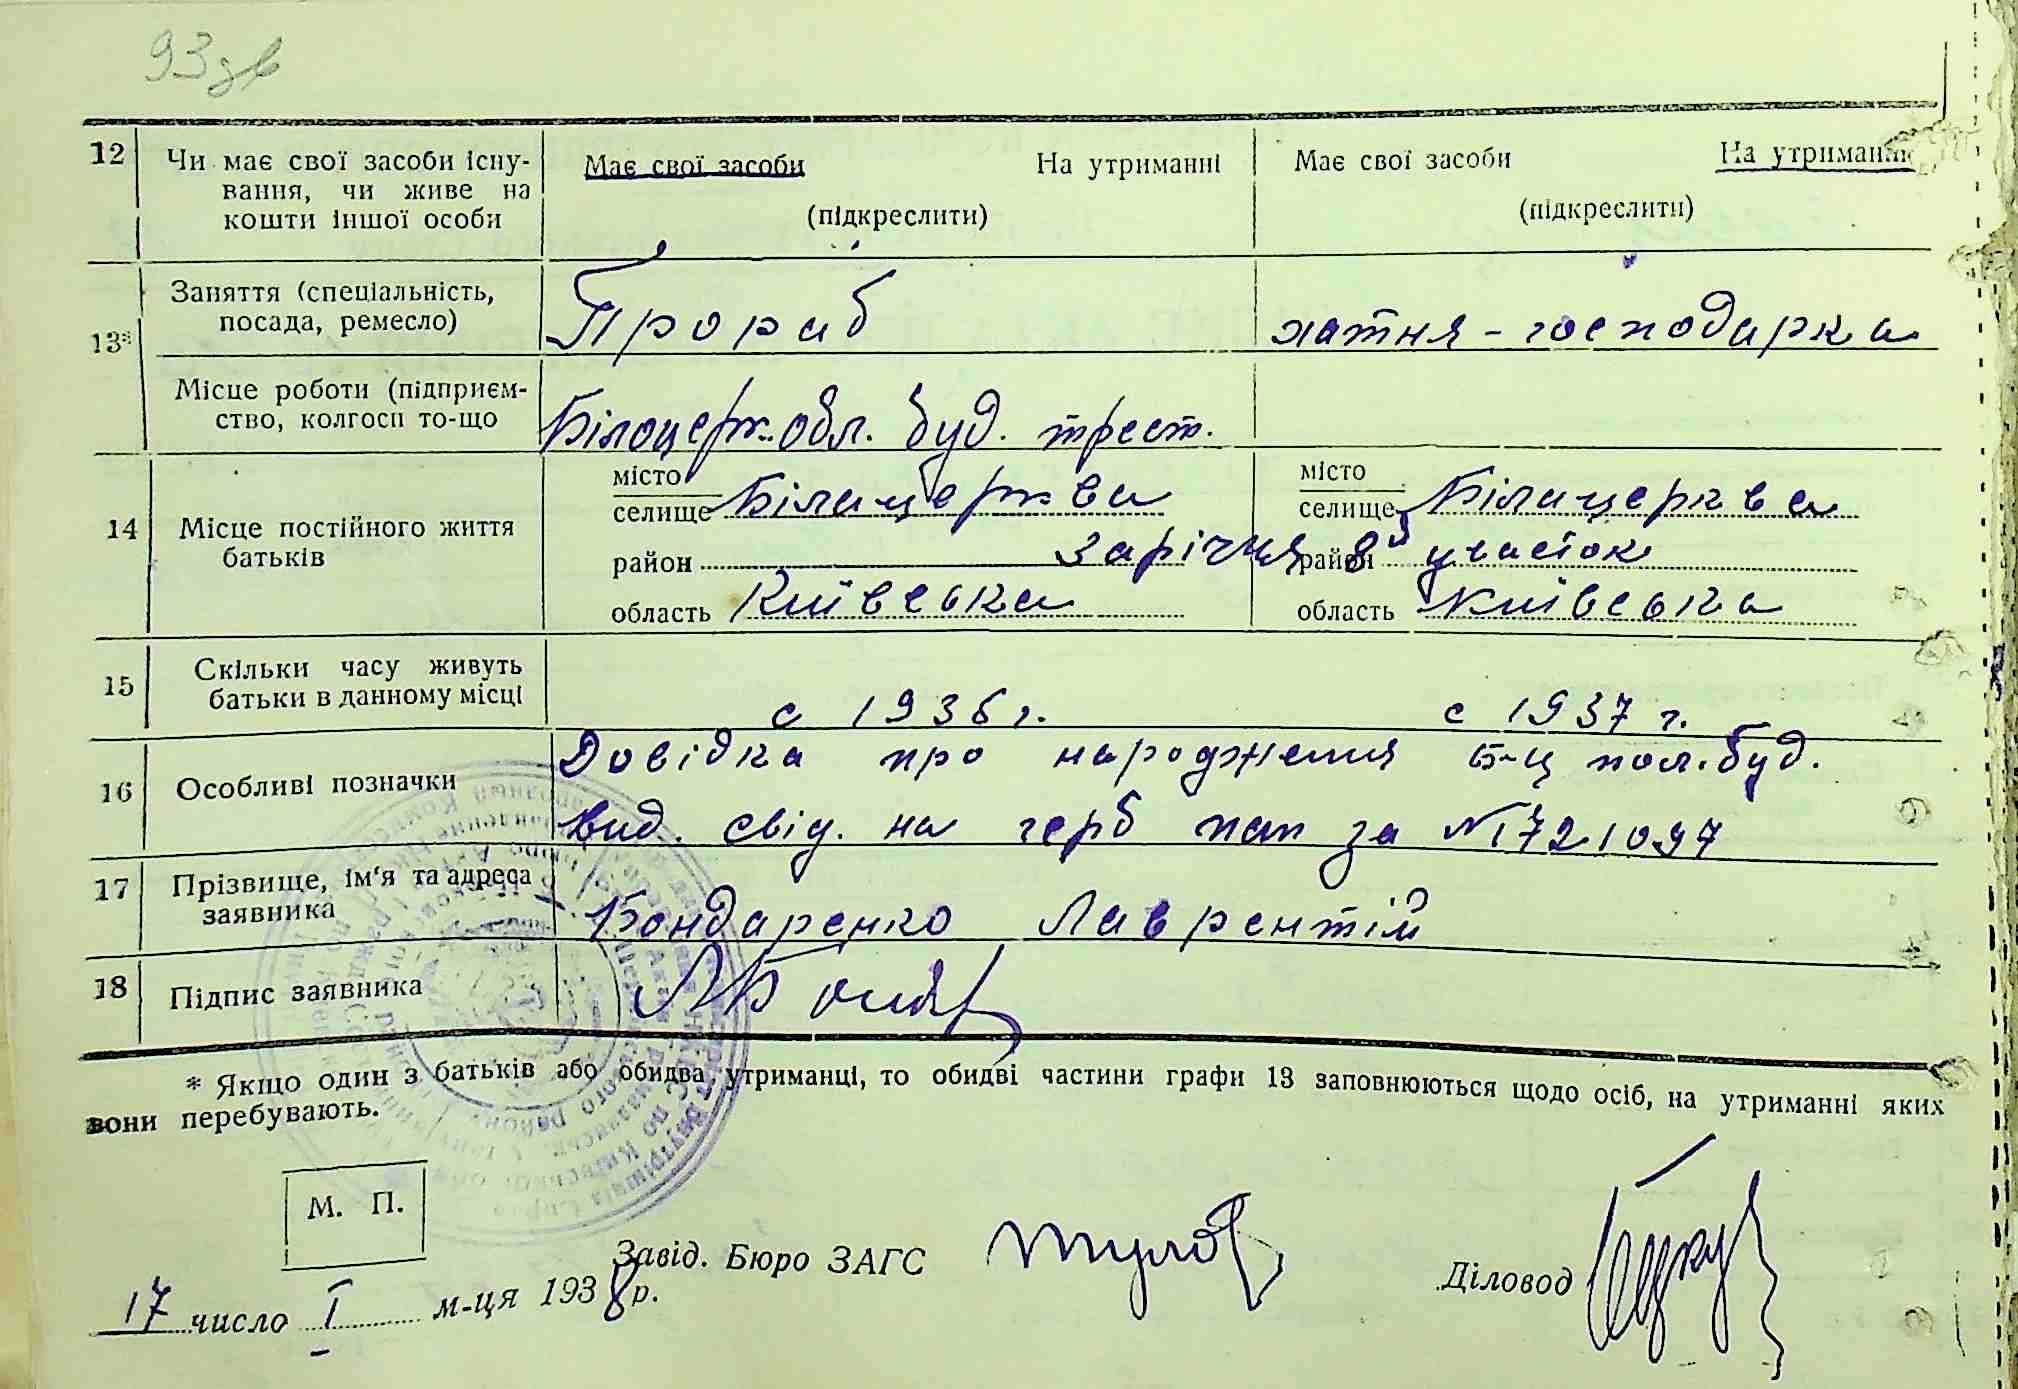 93 зв
12 Чи має свої засоби існу- Має свої засоби На утриманні Має свої засоби На утриманні
вання, чи живе на
кошти іншої особи (підкреслити) (підкреслити)
Заняття (спеціальність,
посада, ремесло) Прораб хатня-господарка
13*
Місце роботи (підприєм-
ство, колгосп то-що Білоцерк. обл. буд. трест.
14 Місце постійного життя
батьків
місто місто
селище Білацерква селище Білацерква
район Зарічья район 8й участок
область Київська область Київська
15 Скільки часу живуть
батьки в данному місці с 1936 г. с 1937 г.
16 Особливі позначки Довідка про народження Б-Ц пол. буд.
вид. свід. на герб пап за №1721097
17 Прізвище, ім'я та адреса
заявника Бондаренко Лаврентій
18 Підпис заявника
* Якщо один з батьків або обидва утриманці, то обидві частини графи 13 заповнюються щодо осіб, на утриманні яких
вони перебувають.
М. П.
Завід. Бюро ЗАГС Діловод
17 число I м-ця 1938 р.